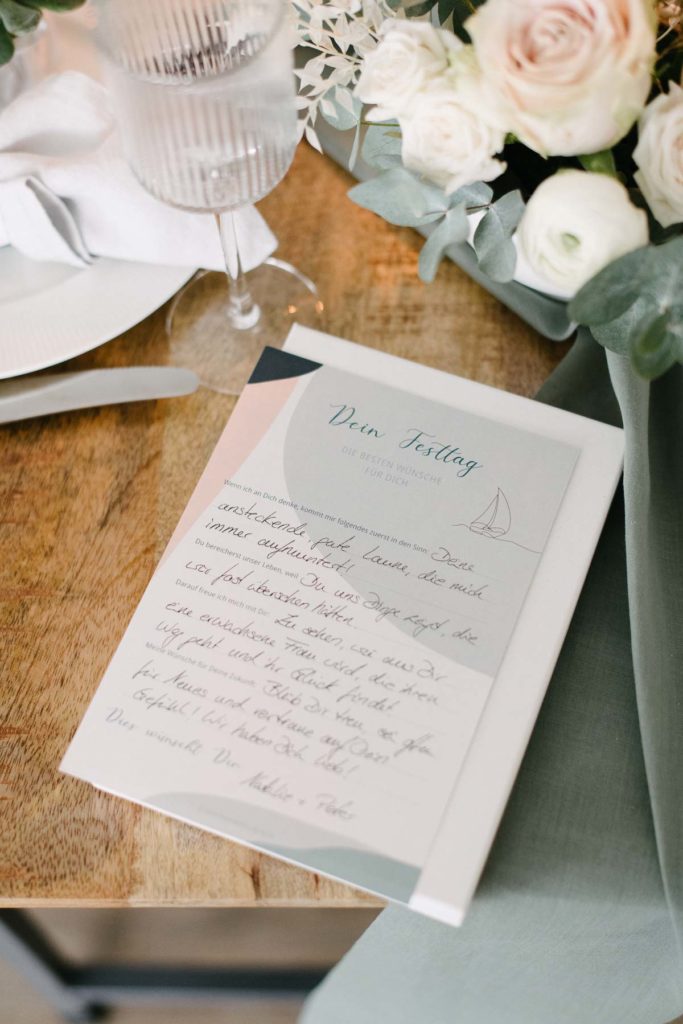 Dein Festtag
DIE BESTEN WÜNSCHE
FÜR DICH
Wenn ich an Dich denke, kommt mir folgendes zuerst in den Sinn: Deine
ansteckende, gute Laune, die mich
immer aufmuntert!
Du bereicherst unser Leben, weil Du uns Dinge zeigst, die
wir fast übersehen hätten.
Darauf freue ich mich mit Dir: Zu sehen, wie aus Dir
eine erwachsene Frau wird, die ihren
Weg geht und ihr Glück findet.
Meine Wünsche für Deine Zukunft: Bleib Dir treu, sei offen
für Neues und vertraue auf Dein
Gefühl! Wir haben Dich lieb!
Dies wünscht Dir
Natalie + Peter